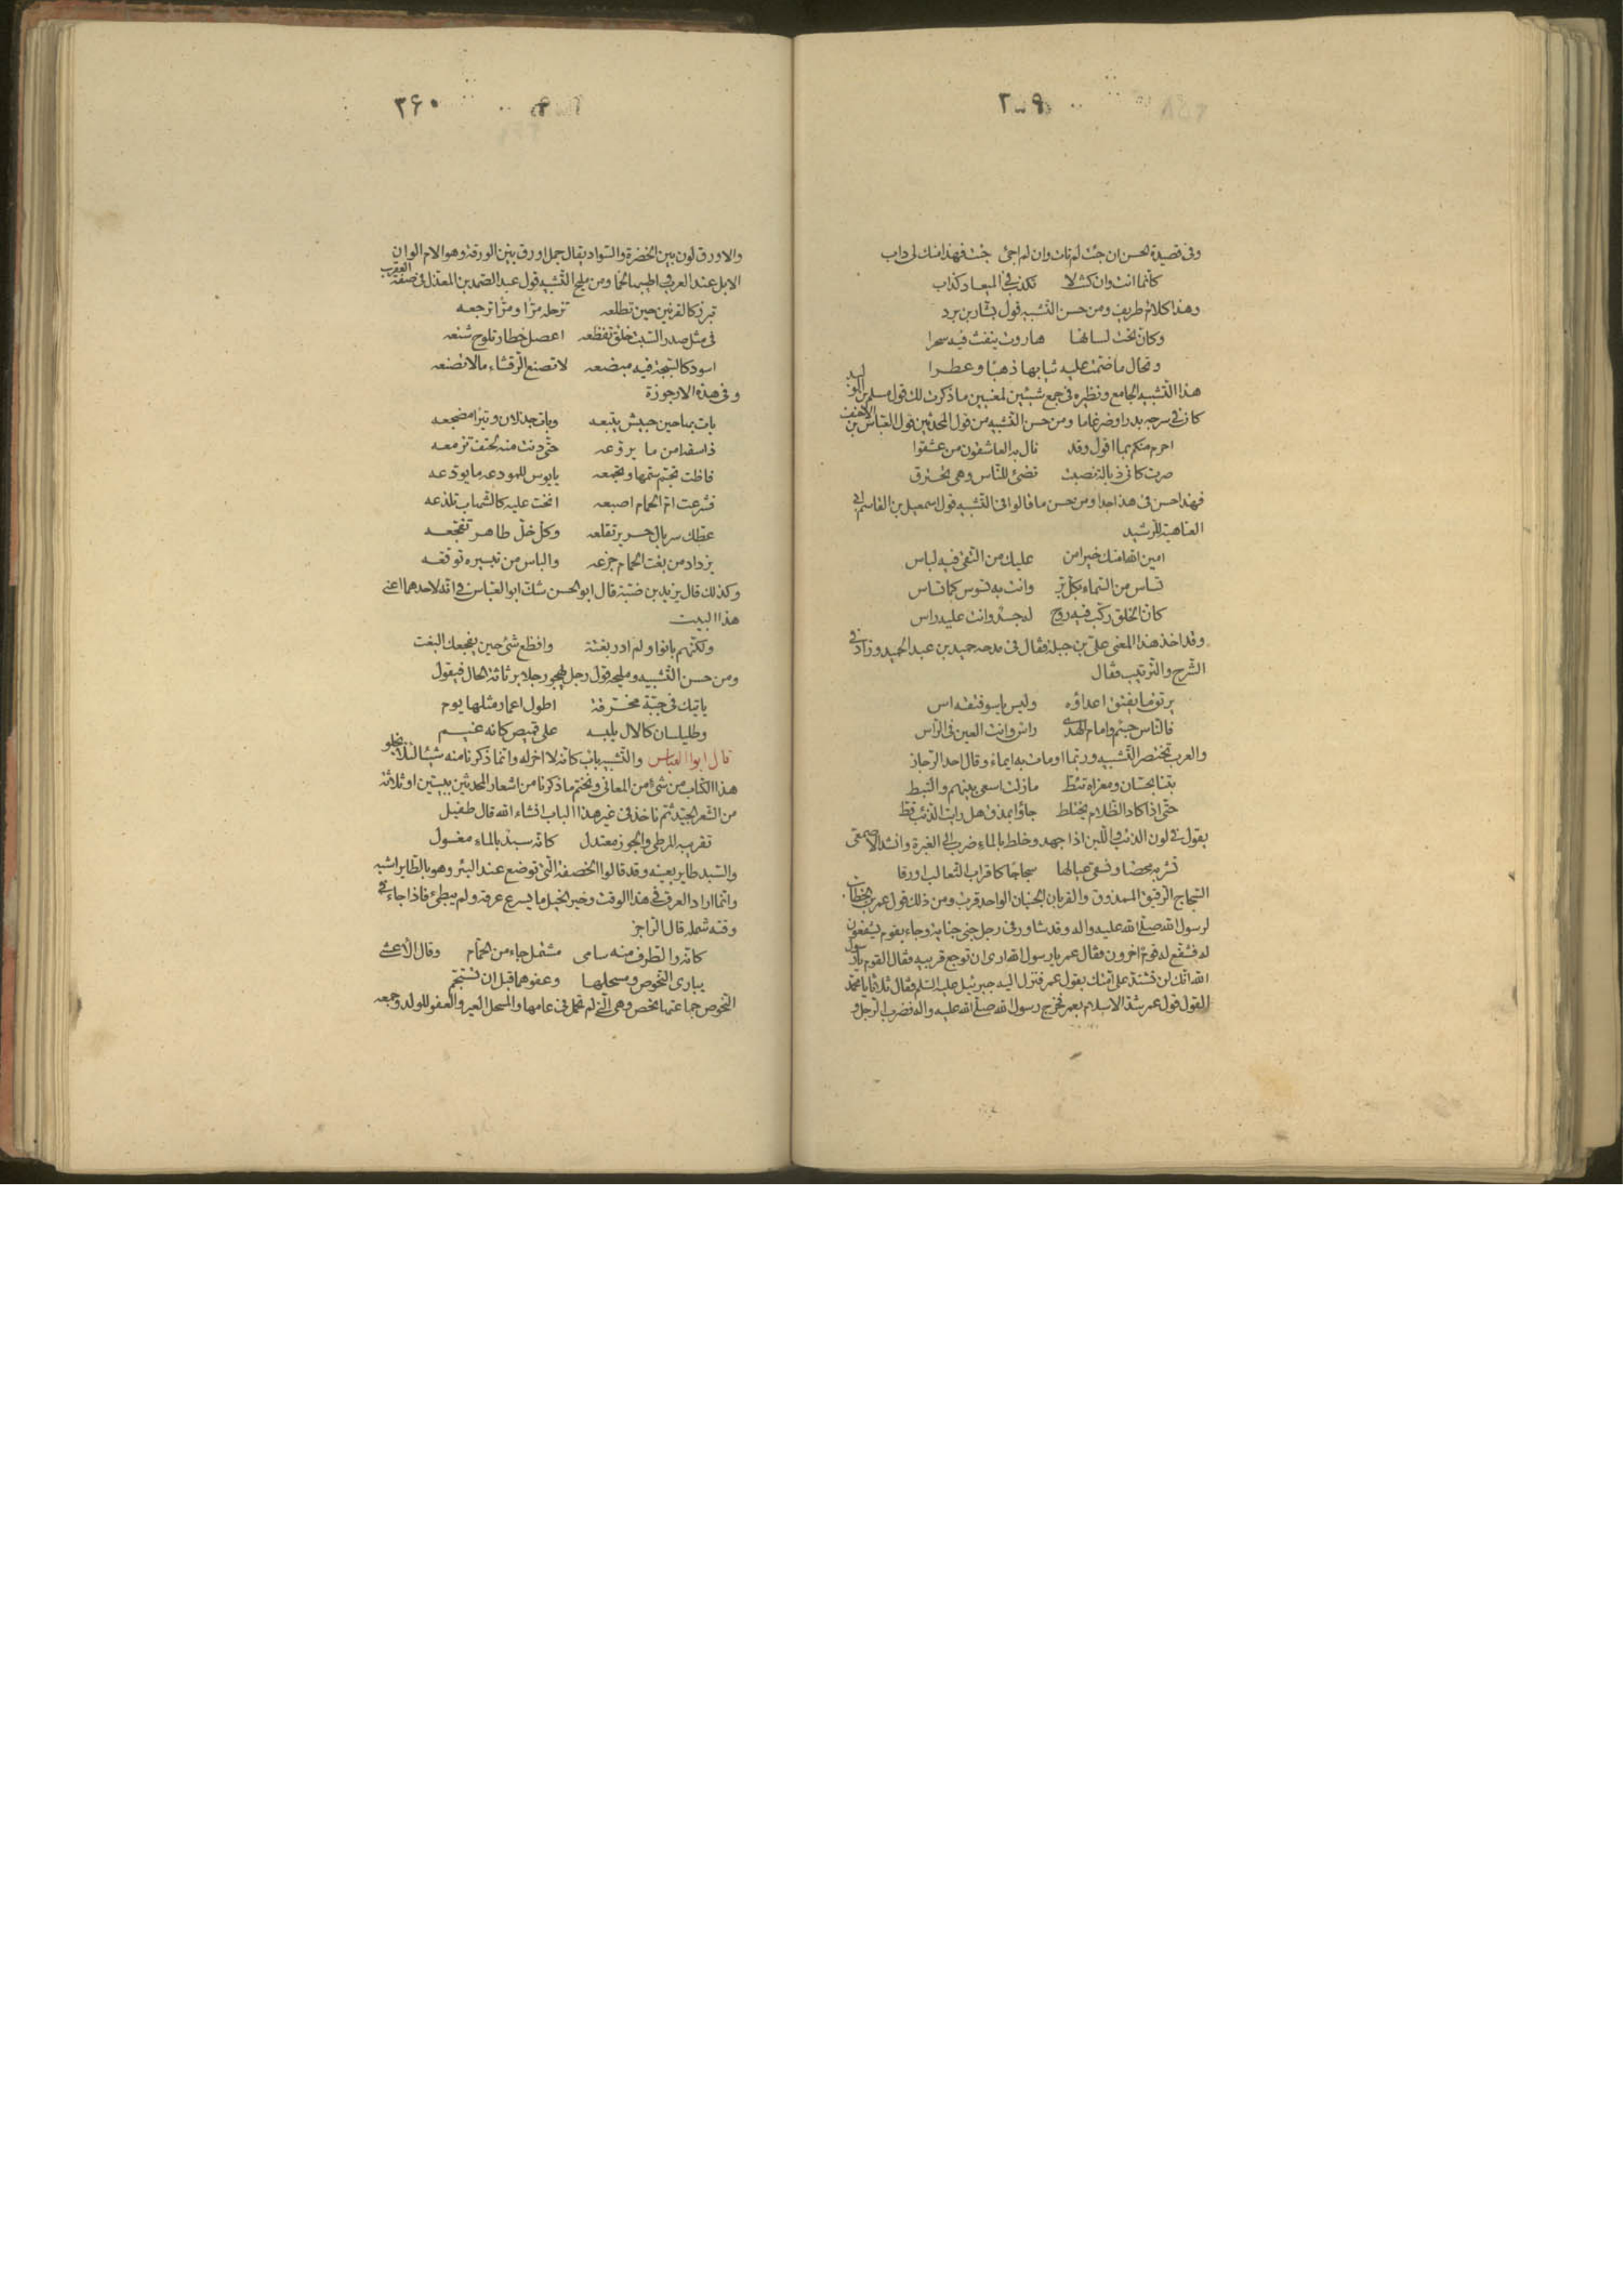 ٢٥٩
وفى قصيدة لحسن ان جئت لم تات وان لم اجئ جئت فهذا منك لى داب
كانما انت وان كنت لا تكذب فى الميعاد كذاب
وهذا كلام طريف ومن حسن التشبيه قول بشار بن برد
وكان تحت لسانها هاروت ينفث فيه سحرا
وتخال ما ضمت عليه ثيابها ذهبا وعطرا
هذا التشبيه الجامع ونظيره فى جمع شيئين لمعنيين ما ذكرت لك قول مسلم بن الوليد
كان فى سرجه بدرا وضرغاما ومن حسن التشبيه من قول المحدثين قول العباس بن الاحنف
احرم منكم بما اقول وقد نال به العاشقون من عشقوا
صرت كانى ذبالة نصبت تضئ للناس وهى تحترق
فهذا حسن فى هذا جدا ومن حسن ما قالوا فى التشبيه قول اسمعيل بن القاسم ابى
العتاهية للرشيد
امين الله امنك خير امن عليك من التقى فيه لباس
تساس من السماء بكل بر وانت به تسوس كما تساس
كان الخلق ركب فيه روح له جسد وانت عليه راس
وقد اخذ هذا المعنى على بن جبلة فقال فى مدحه حميد بن عبد الحميد وزاد فى
الشرح والترتيب فقال
يرتق ما يفتق اعداؤه وليس ياسو فتقه اس
فالناس جسم وامام الهدى راس وانت العين فى الراس
والعرب تختصر التشبيه وربما اومات به ايماء وقال احد الرجاز
بتنا بحسان ومعزاه تئط مازلت اسعى بينهم والتبط
حتى اذا كاد الظلام يختلط جاؤا بمذق هل رايت الذئب قط
يقول فى لون الذئب واللبن اذا جهد وخلط بالماء ضرب الى الغبرة وانشد الاصمعى
نشربه محضا ونسقى عيالها سجاجا كاقراب الثعالب اورقا
السجاج الرقيق الممذوق والقربان الجنبان الواحد قرب ومن ذلك قول عمر بن الخطاب
لرسول الله صلى الله عليه واله وقد شاور فى رجل جنى جناية وجاءه قوم يشفعون
له فشفع له قوم اخرون فقال عمر يا رسول الله ارى ان توجع قربيه فقال القوم يا رسول
الله انك لن تشتد على امتك بقول عمر فنزل اليه جبرئيل عليه السلم فقال ثلاثا يا محمد
القول قول عمر شد الاسلام بعمر فخرج رسول الله صلى الله عليه واله فضرب الرجل و
٣۶٠
والاورق لون بين الخضرة والسواد يقال جمل اورق بين الورقة وهو الام الوان
الابل عند العرب واطيبها لحما ومن مليح التشبيه قول عبد الصمد بن المعذل فى صفة العقرب
تبرز كالقرنين حين تطلعه تزحله مرا ومرا ترجعه
فى مثل صدر السبت خلق تفظعه اعصل خطار تلوح شنعه
اسود كالسبجة فيه مبضعه لا تصنع الرقشاء ما لا تصنعه
وفى هذه الارجوزة
بات بها حين حبيش يتبعه وبات جذلان وثيرا مضجعه
ذا سنة امن ما يروعه حتى دنت منه لحتف تزمعه
فاظت تجم سمها وتجمعه يا بوس للمودعه ما يودعه
فشرعت ام الحمام اصبعه انحت عليه كالشهاب تلذعه
عطك سربال حرير تقلعه وكل خل ظاهر تفجعه
يزداد من بغت الحمام جزعه والياس من تيسيره توقفه
وكذلك قال يزيد بن ضبة قال ابو الحسن شك ابو العباس فى انه لاحدهما اعنى
هذا البيت
ولكنهم بانوا ولم ادر بغتة وافظع شئ حين يفجعك البغت
ومن حسن التشبيه ومليحه قول رجل يهجو رجلا برثاثة الحال فيقول
ياتيك فى جبة مخرقة اطول اعمار مثلها يوم
وطيلسان كالال يلبسه على قميص كانه غيم
قال ابو العباس والتشبيه باب كانه لا اخر له وانما ذكرنا منه شيئا لئلا يخلو
هذا الكتاب من شئ من المعانى ونختم ما ذكرنا من اشعار المحدثين ببيتين او ثلاثة
من الشعر الجيد ثم ناخذ فى غير هذا الباب انشاء الله قال طفيل
تقريبه المرطى والجوز معتدل كانه سبد بالماء مغسول
والسبد طاير بعينه وقد قالوا الخصفة التى توضع عند البئر وهو بالطاير اشبه
وانما اراد العرق فى هذا الوقت وخير الخيل ما يسرع عرقه ولم يبطئ فاذا جاء فى
وقته شمله قال الراجز
كانه والطرف منه سامى مشتمل جاء من الحمام وقال الاعشى
يبارى النحوص ومسحلها وعفوهما قبل ان تستجم
النحوص جماعتها نحص وهى التى لم تحمل فى عامها والمسحل العير والعفو للولد وجمعه